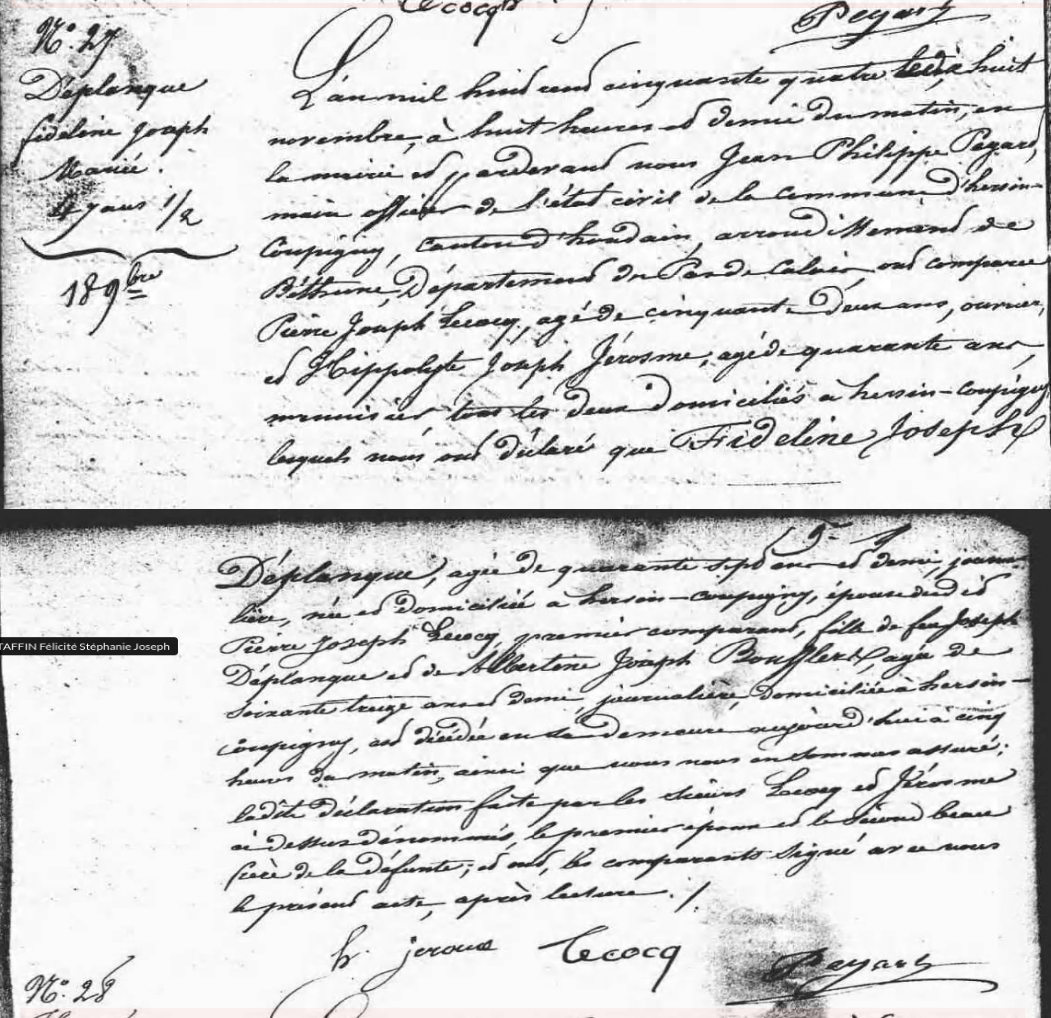 Lecocq
Pegard
N.° 27
Déplanque
fideline joseph
Mariée.
47 ans 1/2
18 9bre
L'an mil huit cent cinquante quatre le dix huit
novembre, à huit heures et demie du matin, en
la mairie et pardevant nous Jean Philippe Pegard,
maire officier de l'état civil de la commune d'hersin-
Coupigny, canton d'houdain, arrondissement de
Béthune, Département du Pas de Calais, ont comparu
Pierre Joseph Lecocq, agé de cinquante Deux ans, ouvrier,
et Hippolyte Joseph Jérosme, agé de quarante ans,
menuisier tous les deux Domiciliés à hersin-coupigny
lesquels nous ont déclaré que Fideline Joseph
Déplanque, agée de quarante sept ans et demi, journa-
lière, née et domiciliée à hersin-coupigny, épouse dudit
Pierre Joseph Lecocq premier comparant, fille de feu Joseph
TAFFIN Félicité Stéphanie Joseph
Déplanque et de Albertine Joseph Boufflers, agée de
soixante treize ans et demi, journalière, Domiciliée à hersin-
coupigny, est décédée en sa demeure aujourd'hui à cinq
heures du matin, ainsi que nous nous en sommes assuré;
ladite déclaration faite par les sieurs Lecocq et Jérosme
ci dessus dénommés, le premier époux et le second beau
frère de la défunte; et ont, les comparants signé avec nous
le présent acte, après lecture. /
h. jerome Lecocq
Pegard
N.° 28